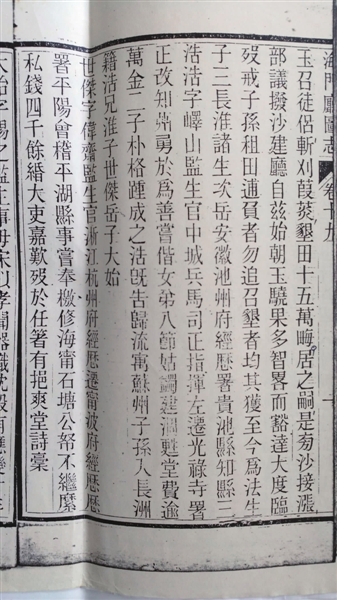 海門廳圖志 卷十九
玉召徒侶斬刈葭菼墾田十五萬畮居之嗣是芴沙接漲
部議撥沙建廳自茲始朝玉驍果多智畧而豁達大度臨
歿戒子孫租田逋負者勿追召墾者均其獲至今爲法生
子三長淮諸生次岳安徽池州府經歴署貴池縣知縣三
浩浩字嶧山監生官中城兵馬司正指揮左遷光祿寺署
正改知縣勇於爲善嘗偕女弟八節姑蠲建溷甦堂費逾
萬金二子朴格踵成之浩旣告歸流寓蘇州子孫入長洲
籍浩兄淮子世傑岳子大始
世傑字偉齋監生官浙江杭州府經歴遷甯波府經歴歴
署平陽會稽平湖縣事嘗奉檄修海甯石塘公帑不繼縻
私錢四千餘緡大吏嘉歎歿於任箸有挹爽堂詩稾
大始字暘之監生事母朱以孝聞器識沈毅